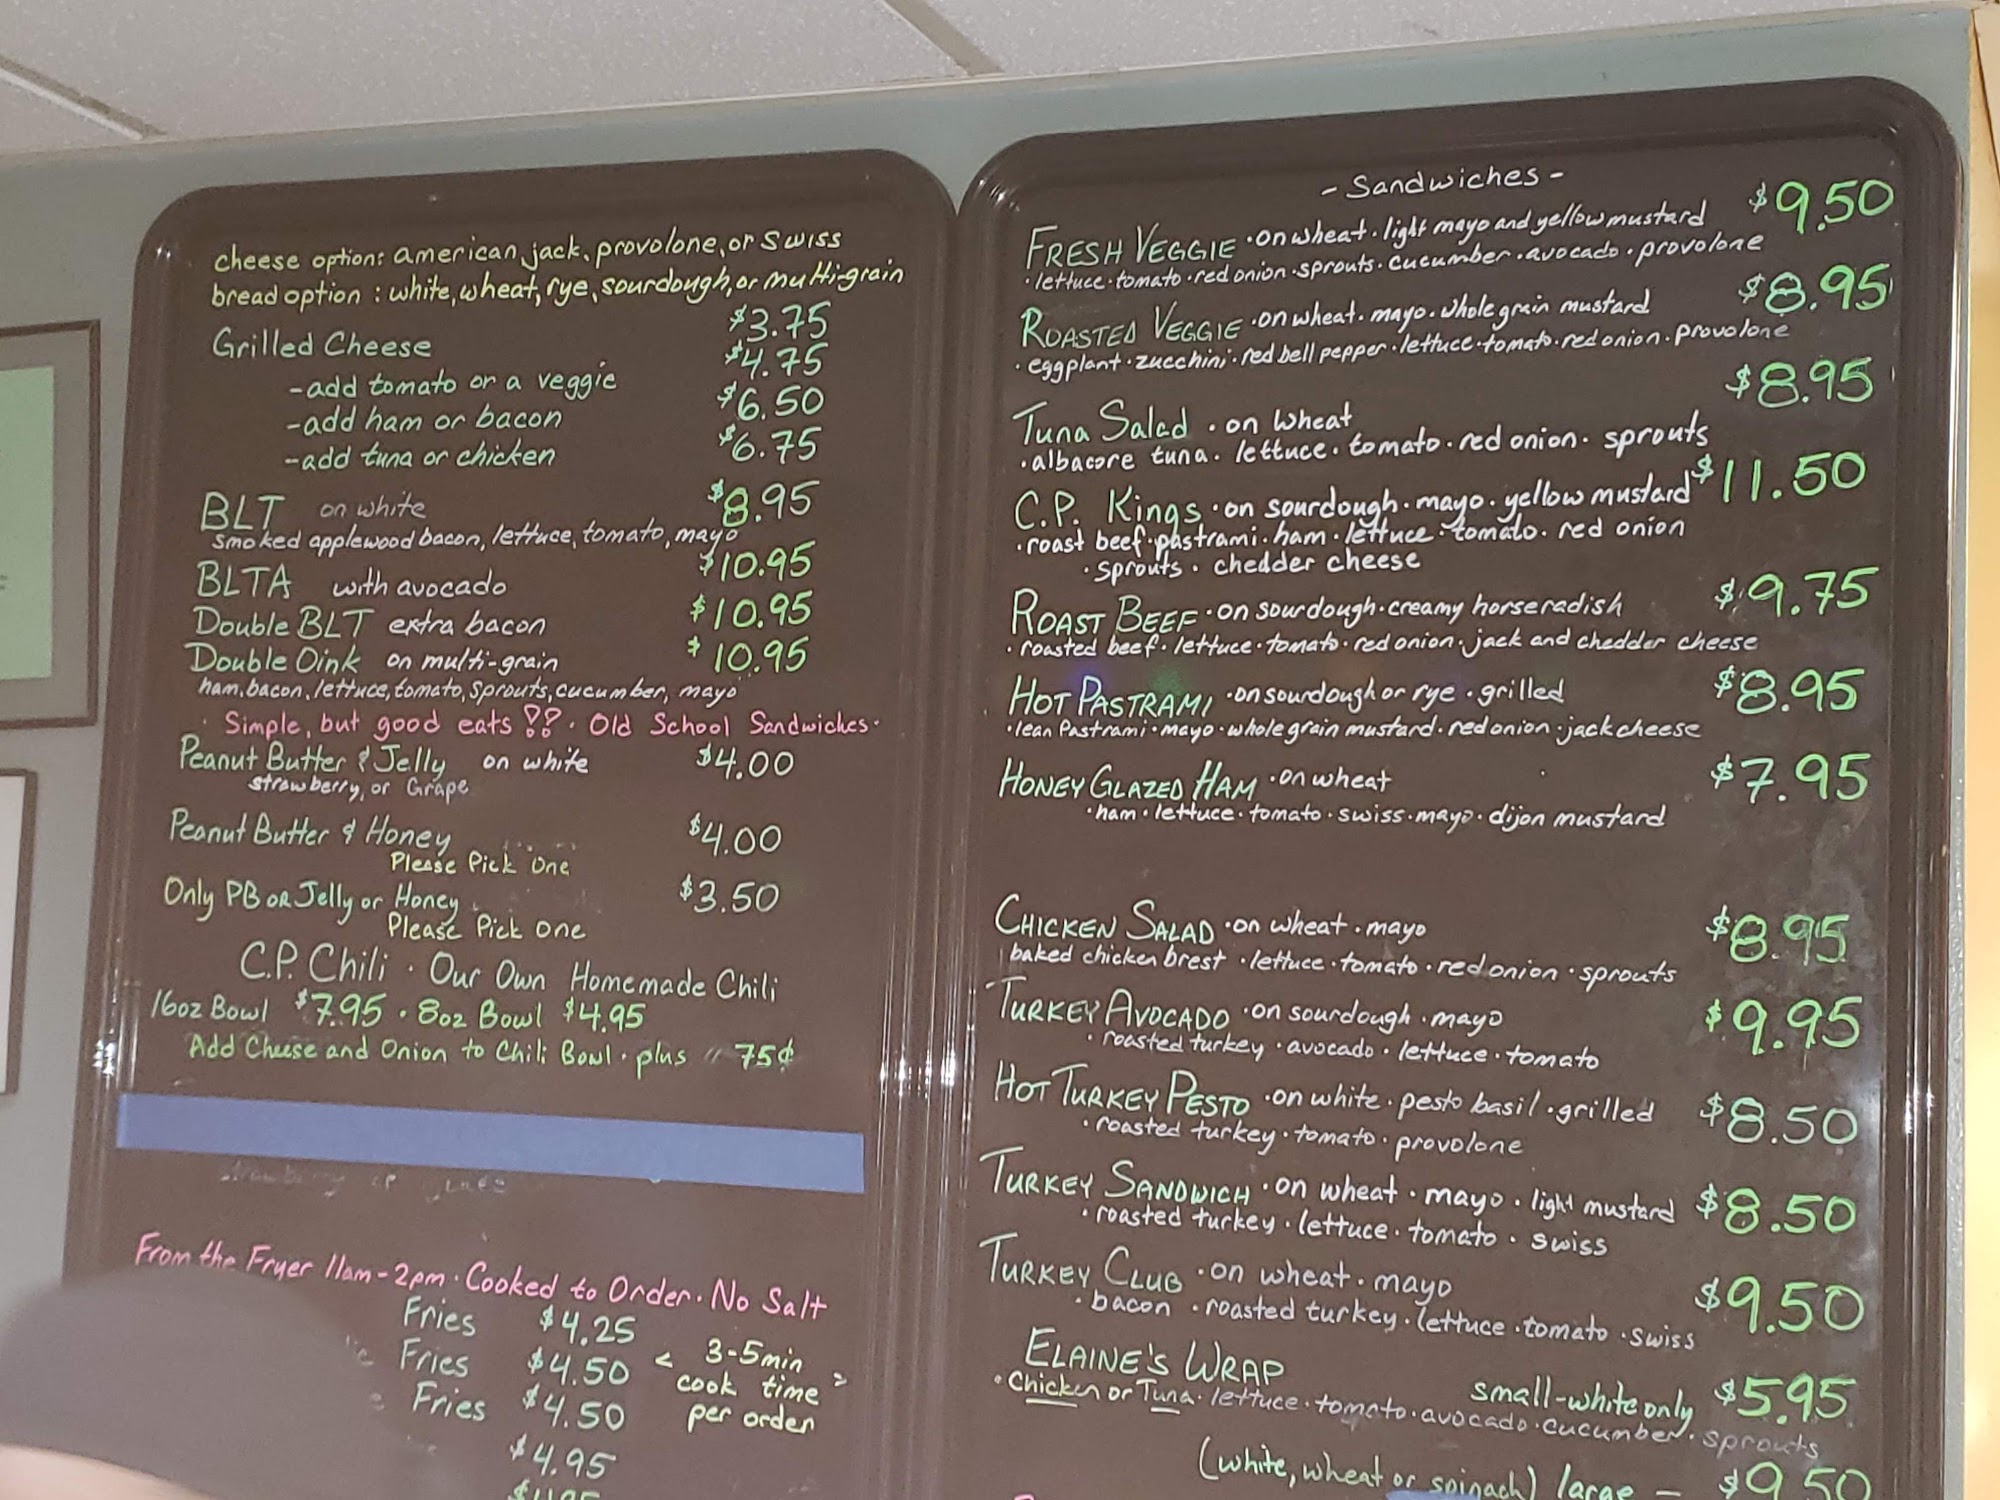 cheese option: american, jack, provolone, or swiss
bread option : white, wheat, rye, sourdough, or multi-grain
Grilled Cheese $3.75
-add tomato or a veggie $4.75
-add ham or bacon $6.50
-add tuna or chicken $6.75
BLT on white $8.95
smoked applewood bacon, lettuce, tomato, mayo
BLTA with avocado $10.95
Double BLT extra bacon $10.95
Double Oink on multi-grain $10.95
ham, bacon, lettuce, tomato, sprouts, cucumber, mayo
· Simple, but good eats !? · Old School Sandwiches ·
Peanut Butter & Jelly on white $4.00
strawberry, or Grape
Peanut Butter & Honey $4.00
Please Pick One
Only PB OR Jelly or Honey $3.50
Please Pick One
C.P. Chili · Our Own Homemade Chili
16oz Bowl $7.95 · 8oz Bowl $4.95
Add Cheese and Onion to Chili Bowl · plus 75¢
From the Fryer 11am-2pm · Cooked to Order · No Salt
Fries $4.25
Fries $4.50
Fries $4.50
< 3-5min >
cook time
per order
$4.95
- Sandwiches -
FRESH VEGGIE · on wheat · light mayo and yellow mustard $9.50
· lettuce · tomato · red onion · sprouts · cucumber · avocado · provolone
ROASTED VEGGIE · on wheat · mayo · whole grain mustard $8.95
· eggplant · zucchini · red bell pepper · lettuce · tomato · red onion · provolone
Tuna Salad · on wheat $8.95
· albacore tuna · lettuce · tomato · red onion · sprouts
C.P. Kings · on sourdough · mayo · yellow mustard $11.50
· roast beef · pastrami · ham · lettuce · tomato · red onion
· sprouts · chedder cheese
ROAST BEEF · on sourdough · creamy horseradish $9.75
· roasted beef · lettuce · tomato · red onion · jack and chedder cheese
HOT PASTRAMI · on sourdough or rye · grilled $8.95
· lean Pastrami · mayo · whole grain mustard · red onion · jack cheese
HONEY GLAZED HAM · on wheat $7.95
· ham · lettuce · tomato · swiss · mayo · dijon mustard
CHICKEN SALAD · on wheat · mayo $8.95
baked chicken brest · lettuce · tomato · red onion · sprouts
TURKEY AVOCADO · on sourdough · mayo $9.95
· roasted turkey · avocado · lettuce · tomato
HOT TURKEY PESTO · on white · pesto basil · grilled $8.50
· roasted turkey · tomato · provolone
TURKEY SANDWICH · on wheat · mayo · light mustard $8.50
· roasted turkey · lettuce · tomato · swiss
TURKEY CLUB · on wheat · mayo $9.50
· bacon · roasted turkey · lettuce · tomato · swiss
ELAINE'S WRAP small-white only $5.95
· Chicken or Tuna · lettuce · tomato · avocado · cucumber · sprouts
(white, wheat or spinach) large - $9.50